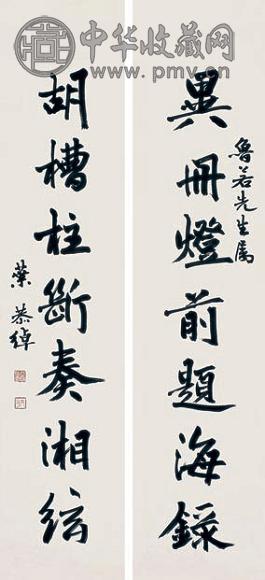 中华收藏网
www.pmv.cn
異冊燈前題海錄
魯若先生属
胡槽柱斷奏湘絃
葉恭綽